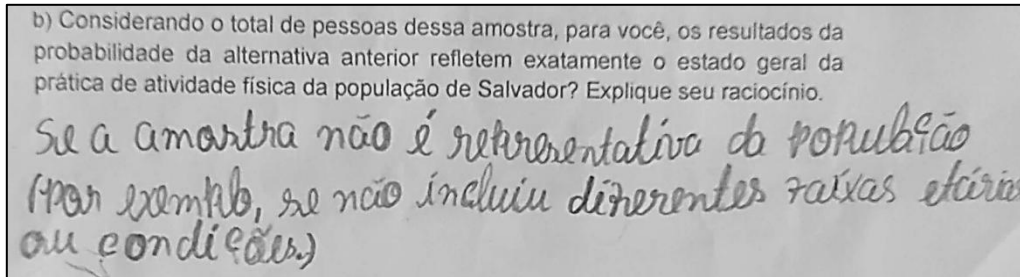 b) Considerando o total de pessoas dessa amostra, para você, os resultados da
probabilidade da alternativa anterior refletem exatamente o estado geral da
prática de atividade física da população de Salvador? Explique seu raciocínio.
Se a amostra não é representativa da população
(por exemplo, se não incluiu diferentes faixas etárias
ou condições)